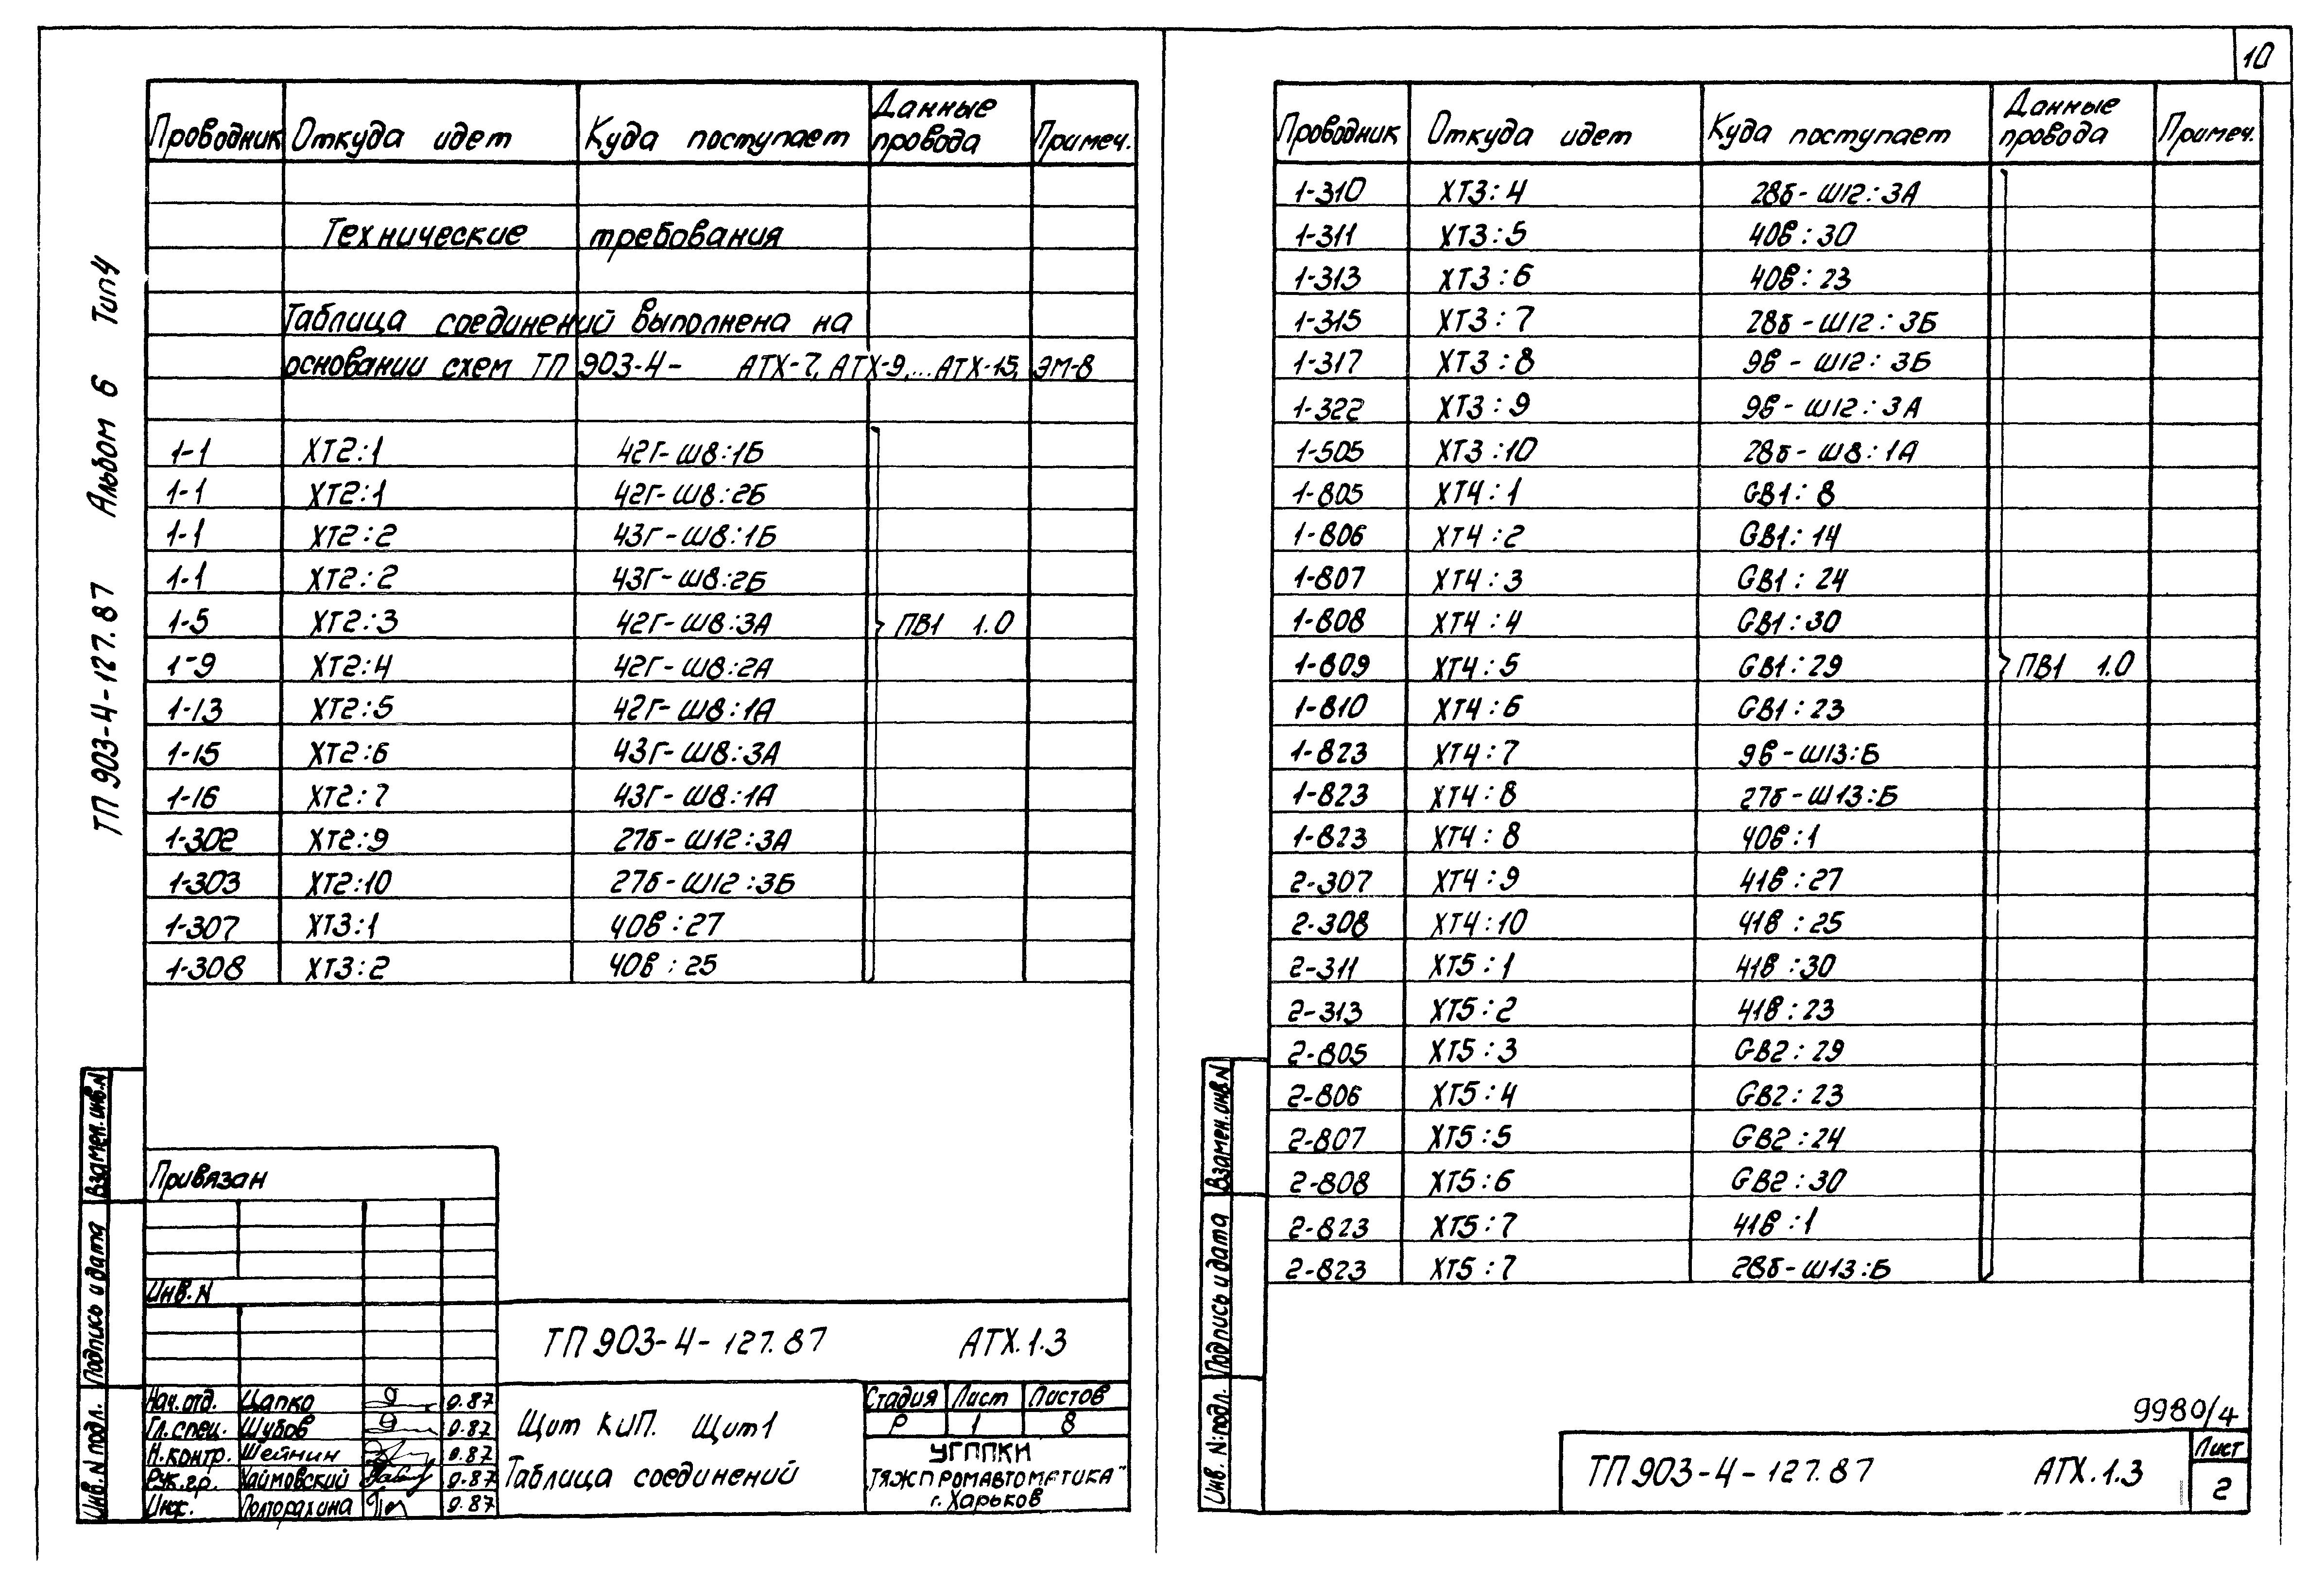 10
ТП 903-4-127.87 Альбом 6 Тип 4
Проводник Откуда идет Куда поступает Данные провода Примеч.
Технические требования
Таблица соединений выполнена на
основании схем ТП 903-4- АТХ-7, АТХ-9,... АТХ-15, ЭМ-8
1-1 ХТ2:1 42Г-Ш8:1Б
1-1 ХТ2:1 42Г-Ш8:2Б
1-1 ХТ2:2 43Г-Ш8:1Б
1-1 ХТ2:2 43Г-Ш8:2Б
1-5 ХТ2:3 42Г-Ш8:3А ПВ1 1.0
1-9 ХТ2:4 42Г-Ш8:2А
1-13 ХТ2:5 42Г-Ш8:1А
1-15 ХТ2:6 43Г-Ш8:3А
1-16 ХТ2:7 43Г-Ш8:1А
1-302 ХТ2:9 27б-Ш12:3А
1-303 ХТ2:10 27б-Ш12:3Б
1-307 ХТ3:1 40в:27
1-308 ХТ3:2 40в:25
Привязан
Инв. N
Взамен. инв. N
Подпись и дата
Инв. N подл.
ТП 903-4-127.87 АТХ.1.3
Нач. отд. Цапко 9.87
Гл. спец. Шубов 9.87
Н. контр. Шейнин 9.87
Рук. гр. Хаймовский 9.87
Инж. 9.87
Щит КИП. Щит 1
Таблица соединений
Стадия Лист Листов
Р 1 8
УГППКИ
"ТЯЖПРОМАВТОМАТИКА"
г. Харьков
Проводник Откуда идет Куда поступает Данные провода Примеч.
1-310 ХТ3:4 28б-Ш12:3А
1-311 ХТ3:5 40в:30
1-313 ХТ3:6 40в:23
1-315 ХТ3:7 28б-Ш12:3Б
1-317 ХТ3:8 9в-Ш12:3Б
1-322 ХТ3:9 9в-Ш12:3А
1-505 ХТ3:10 28б-Ш8:1А
1-805 ХТ4:1 GB1:8
1-806 ХТ4:2 GB1:14
1-807 ХТ4:3 GB1:24
1-808 ХТ4:4 GB1:30
1-809 ХТ4:5 GB1:29 ПВ1 1.0
1-810 ХТ4:6 GB1:23
1-823 ХТ4:7 9в-Ш13:Б
1-823 ХТ4:8 27б-Ш13:Б
1-823 ХТ4:8 40в:1
2-307 ХТ4:9 41в:27
2-308 ХТ4:10 41в:25
2-311 ХТ5:1 41в:30
2-313 ХТ5:2 41в:23
2-805 ХТ5:3 GB2:29
2-806 ХТ5:4 GB2:23
2-807 ХТ5:5 GB2:24
2-808 ХТ5:6 GB2:30
2-823 ХТ5:7 41в:1
2-823 ХТ5:7 28б-Ш13:Б
Взамен. инв. N
Подпись и дата
Инв. N: подл.
9980/4
ТП 903-4-127.87 АТХ.1.3
Лист
2